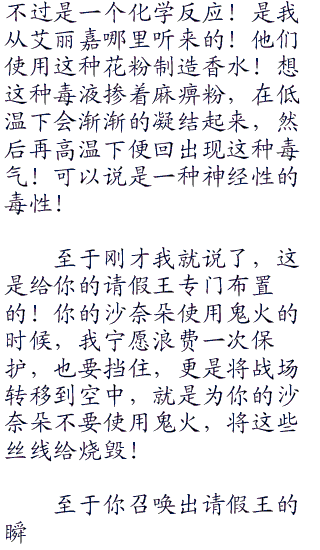 不过是一个化学反应！是我
从艾丽嘉哪里听来的！他们
使用这种花粉制造香水！想
这种毒液掺着麻痹粉，在低
温下会渐渐的凝结起来，然
后再高温下便回出现这种毒
气！可以说是一种神经性的
毒性！
至于刚才我就说了，这
是给你的请假王专门布置
的！你的沙奈朵使用鬼火的
时候，我宁愿浪费一次保
护，也要挡住，更是将战场
转移到空中，就是为你的沙
奈朵不要使用鬼火，将这些
丝线给烧毁！
至于你召唤出请假王的
瞬